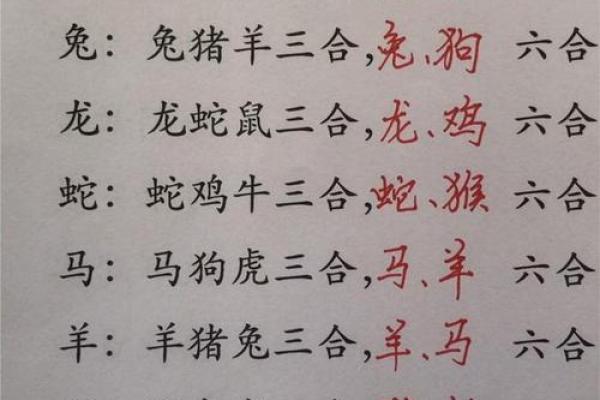 兔：兔猪羊三合,兔、狗 六合
龙：龙蛇鼠三合,龙、鸡 六合
蛇：蛇鸡牛三合,蛇、猴 六合
马：马狗虎三合,马、羊 六合
羊：羊猪兔三合,羊、马 六合